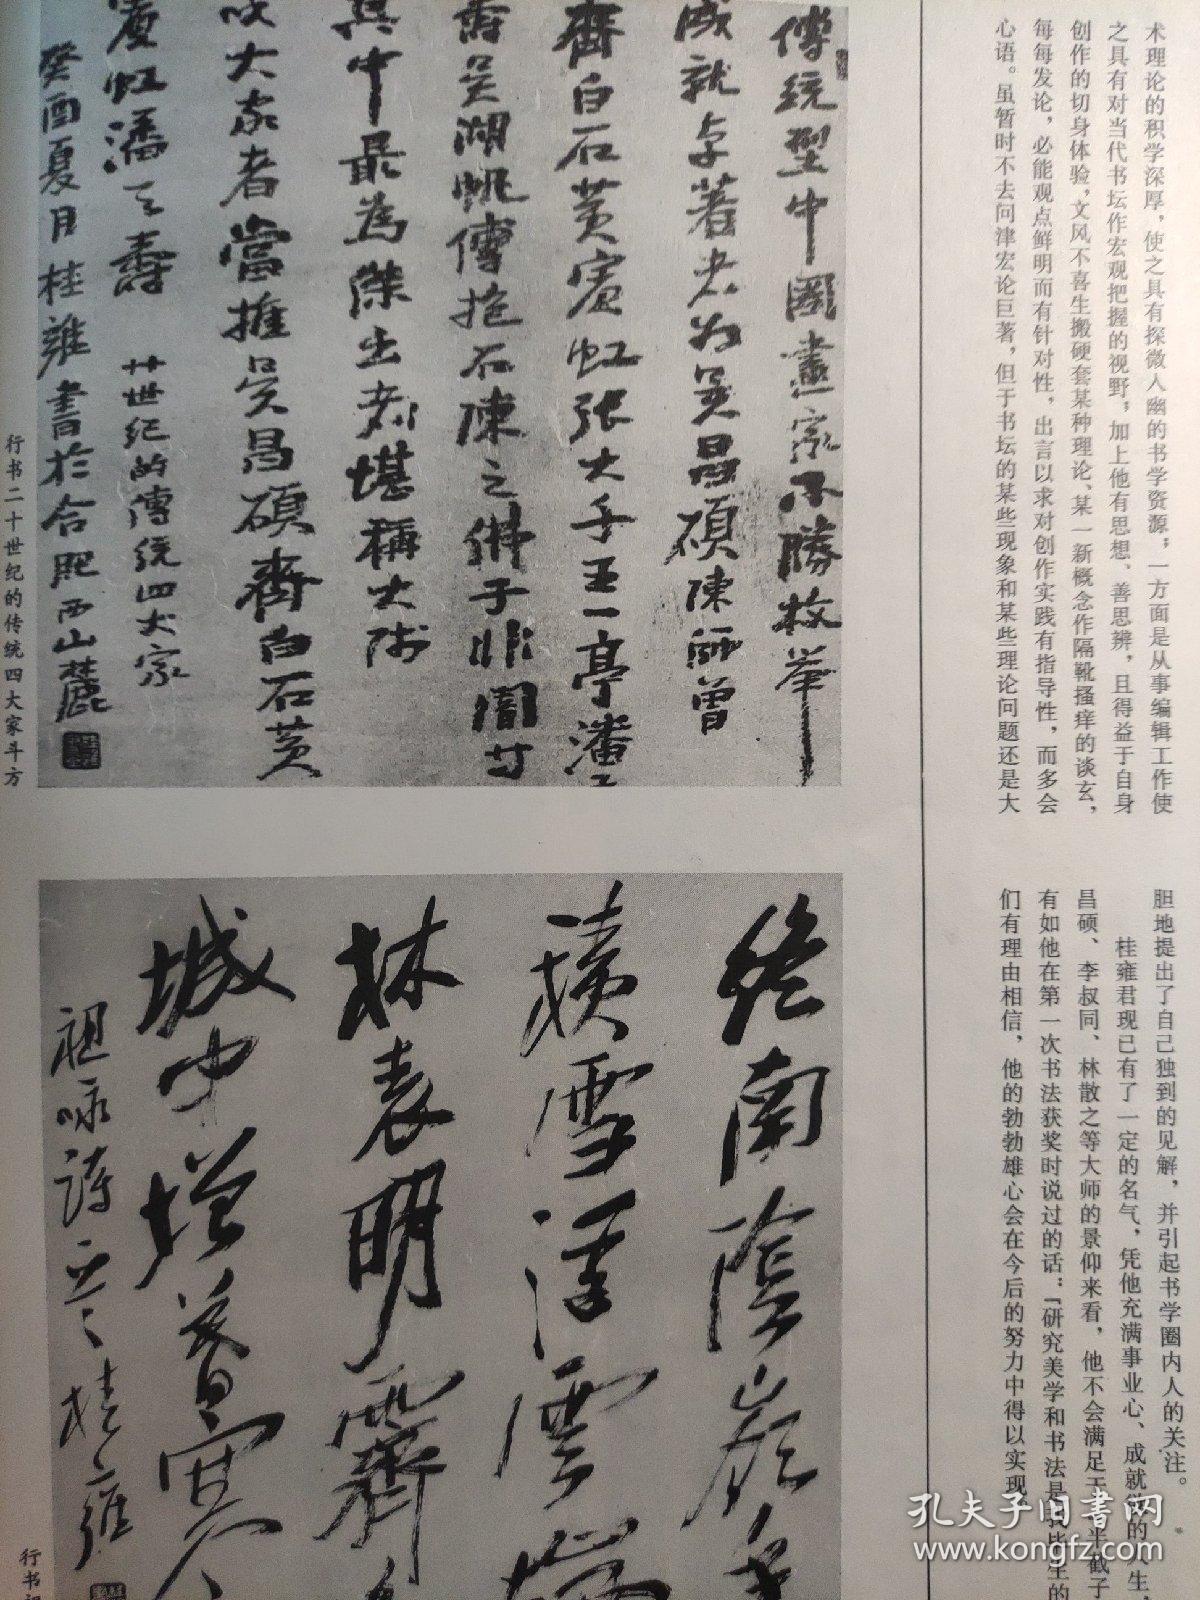 术理论的积学深厚，使之具有探微人幽的书学资源；一方面是从事编辑工作使
之具有对当代书坛作宏观把握的视野，加上他有思想、善思辨，且得益于自身
创作的切身体验，文风不喜生搬硬套某种理论、某一新概念作隔靴搔痒的谈玄，
每每发论，必能观点鲜明而有针对性，出言以求对创作实践有指导性，而多会
心语。虽暂时不去问津宏论巨著，但于书坛的某些现象和某些理论问题还是大
胆地提出了自己独到的见解，并引起书学圈内人的关注。
桂雍君现已有了一定的名气，凭他充满事业心、成就欲的人生，
昌硕、李叔同、林散之等大师的景仰来看，他不会满足于半截子
有如他在第一次书法获奖时说过的话：「研究美学和书法是我毕生的
们有理由相信，他的勃勃雄心会在今后的努力中得以实现
傳統型中國畫家不勝枚舉
成就卓著者为吴昌碩陳師曾
齊白石黄賓虹张大千王一亭潘天
壽吴湖帆傅抱石陳之佛于非闇等
其中最為傑出者堪稱大师
大家者當推吴昌碩齊白石黄
賓虹潘天壽 廿世纪的傳統四大家
癸酉夏月桂雍書於合肥西山麓
行书二十世纪的传统四大家斗方
终南陰嶺秀
積雪浮雲端
林表明霽色
城中增暮寒
祖咏詩一首桂雍
行书祖
孔夫子旧书网
www.kongfz.com